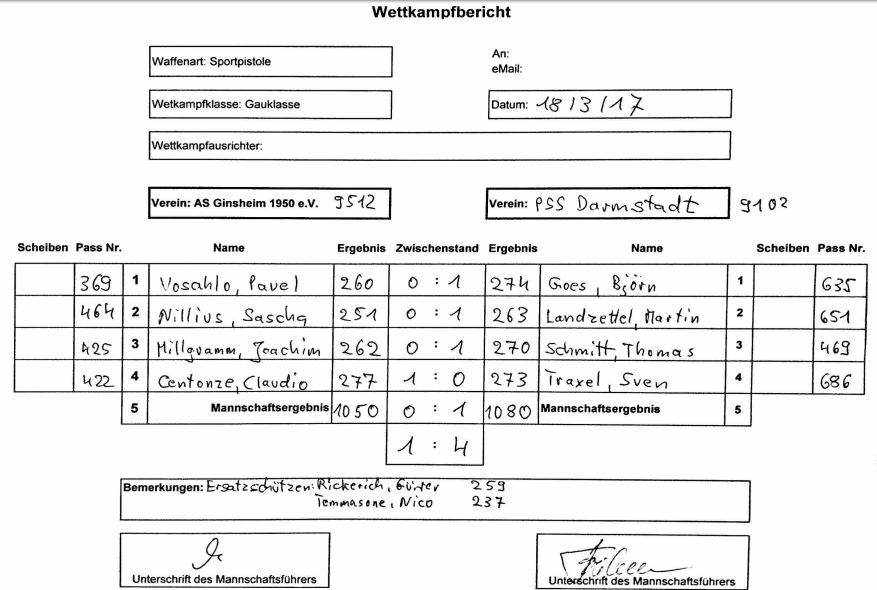 Wettkampfbericht
Waffenart: Sportpistole
An:
eMail:
Wetkampfklasse: Gauklasse
Datum: 18/3/17
Wettkampfausrichter:
Verein: AS Ginsheim 1950 e.V. 9512
Verein: PSS Darmstadt 9102
Scheiben Pass Nr. Name Ergebnis Zwischenstand Ergebnis Name Scheiben Pass Nr.
369 1 Vosahlo, Pavel 260 0 : 1 274 Goes, Björn 1 635
464 2 Nillius, Sascha 251 0 : 1 263 Landzettel, Martin 2 651
425 3 Millgramm, Joachim 262 0 : 1 270 Schmitt, Thomas 3 469
422 4 Centonze, Claudio 277 1 : 0 273 Traxel, Sven 4 686
5 Mannschaftsergebnis 1050 0 : 1 1080 Mannschaftsergebnis 5
1 : 4
Bemerkungen: Ersatzschützen: Rickerich, 259
Temmasone, Nico 237
Unterschrift des Mannschaftsführers
Unterschrift des Mannschaftsführers